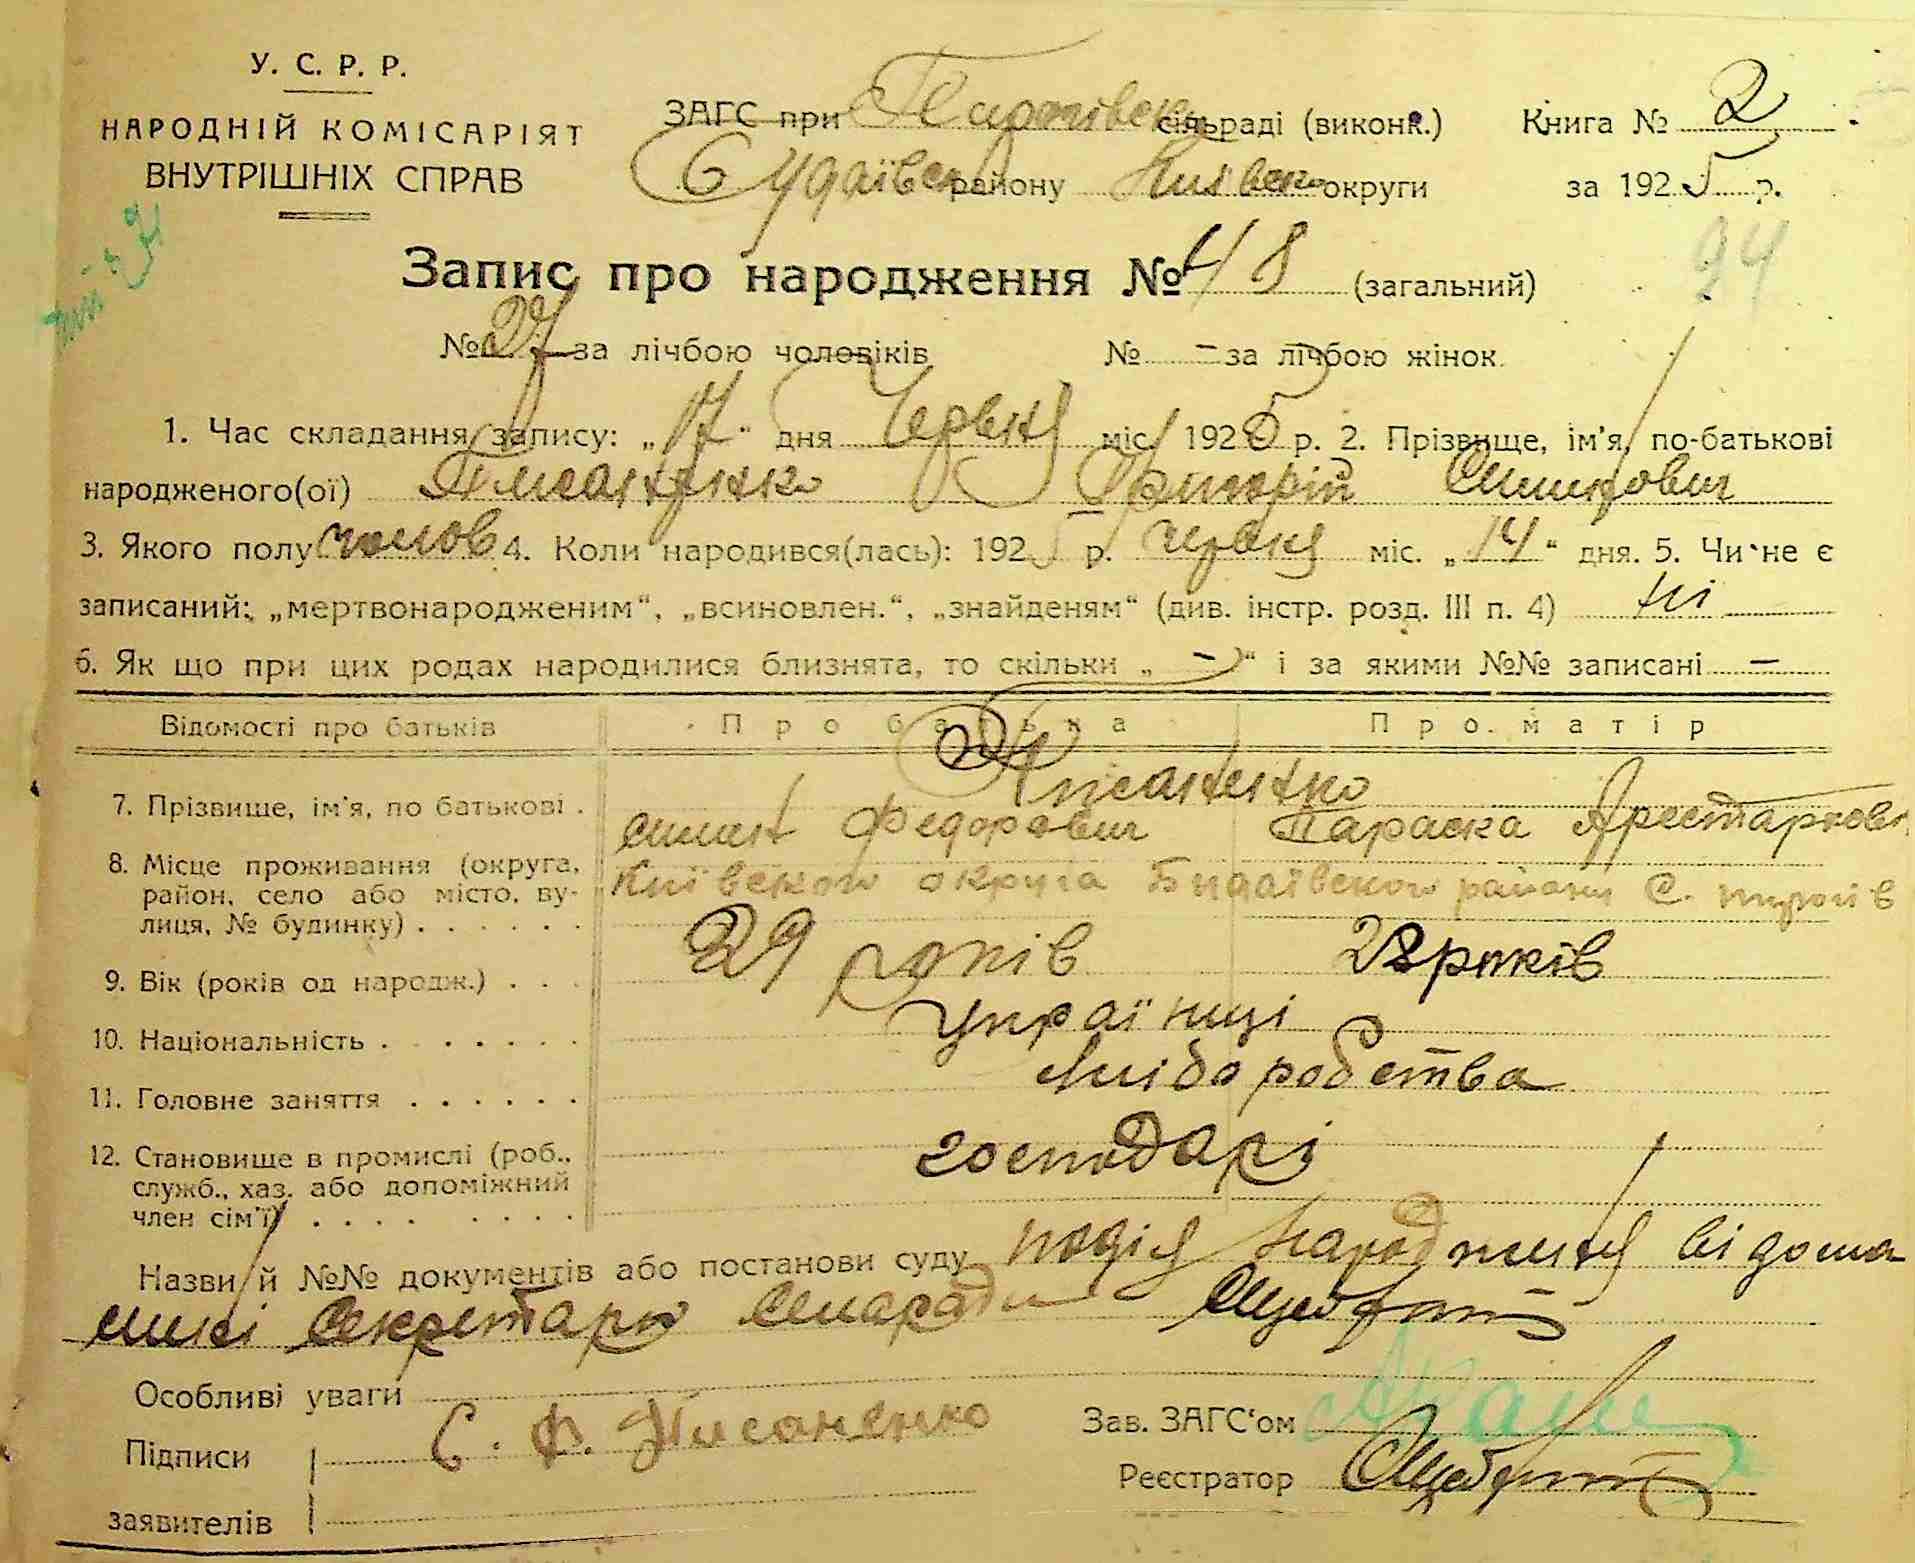 У. С. Р. Р.
НАРОДНІЙ КОМІСАРІЯТ
ВНУТРІШНІХ СПРАВ
ЗАГС при Пирогівск сільраді (викон.)
Будаївск району Київско округи
Книга № 2
за 1925 р.
94
Запис про народження № 48 (загальний)
№ 27 за лічбою чоловіків № - за лічбою жінок.
1. Час складання запису: „17“ дня Червня міс. 1925 р. 2. Прізвище, ім'я, по-батькові
народженого(ої) Писаненко Григорій Симонович
3. Якого полу чолов 4. Коли народився(лась): 1925 р. червня міс. „14“ дня. 5. Чи не є
записаний: „мертвонародженим“, „всиновлен.“, „знайденям“ (див. інстр. розд. III п. 4) ні
6. Як що при цих родах народилися близнята, то скільки „-“ і за якими №№ записані —
Відомості про батьків Про батька Про матір
Писаненко
7. Прізвище, ім'я, по батькові . Симон Федорович Параска Арестарковн
8. Місце проживання (округа, район, село або місто, вулиця, № будинку) . . . . . . Київської округа Будаївского району С. Пирогів
9. Вік (років од народж.) . . . 29 років 28 років
10. Національність . . . . . . . Українці
11. Головне заняття . . . . . . Хліборобства
12. Становище в промислі (роб., служб., хаз. або допоміжний член сім'ї) . . . . . . . . . господарі
Назви й №№ документів або постанови суду подія народження відома
мені Секретарю Сільради
Особливі уваги
Підписи С. Ф. Писаненко
заявителів
Зав. ЗАГС'ом
Реєстратор